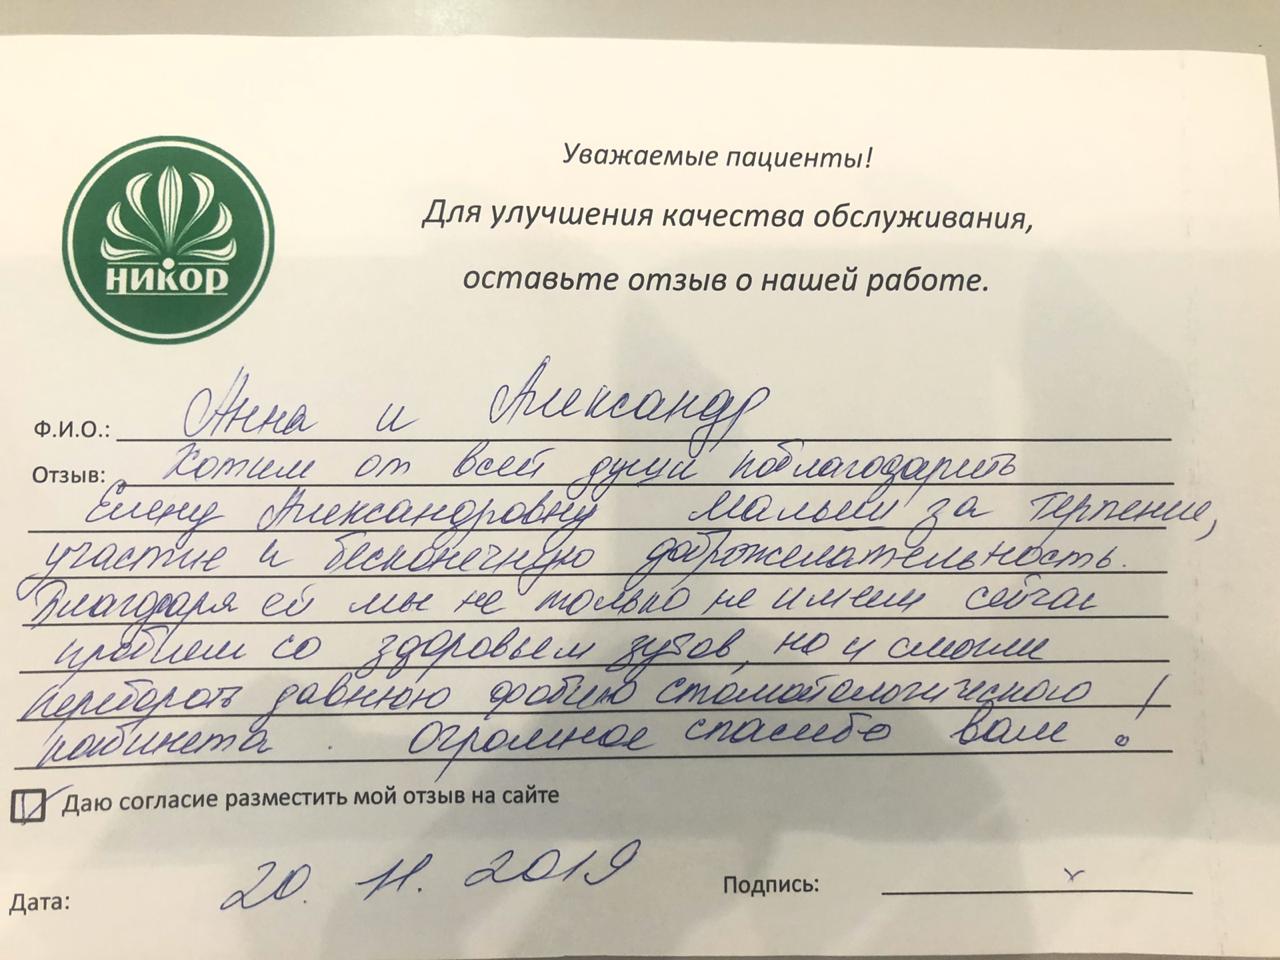 Уважаемые пациенты!
Для улучшения качества обслуживания,
оставьте отзыв о нашей работе.
НИКОР
Ф.И.О.: Анна и Александр
Отзыв: Хотим от всей души поблагодарить
Елену Александровну Малыш за терпение,
участие и бесконечную доброжелательность.
Благодаря ей мы не только не имеем сейчас
проблем со здоровьем зубов, но и смогли
перебороть давнюю фобию стоматологического
кабинета. Огромное спасибо вам!
Даю согласие разместить мой отзыв на сайте
Дата: 20.11.2019 Подпись: